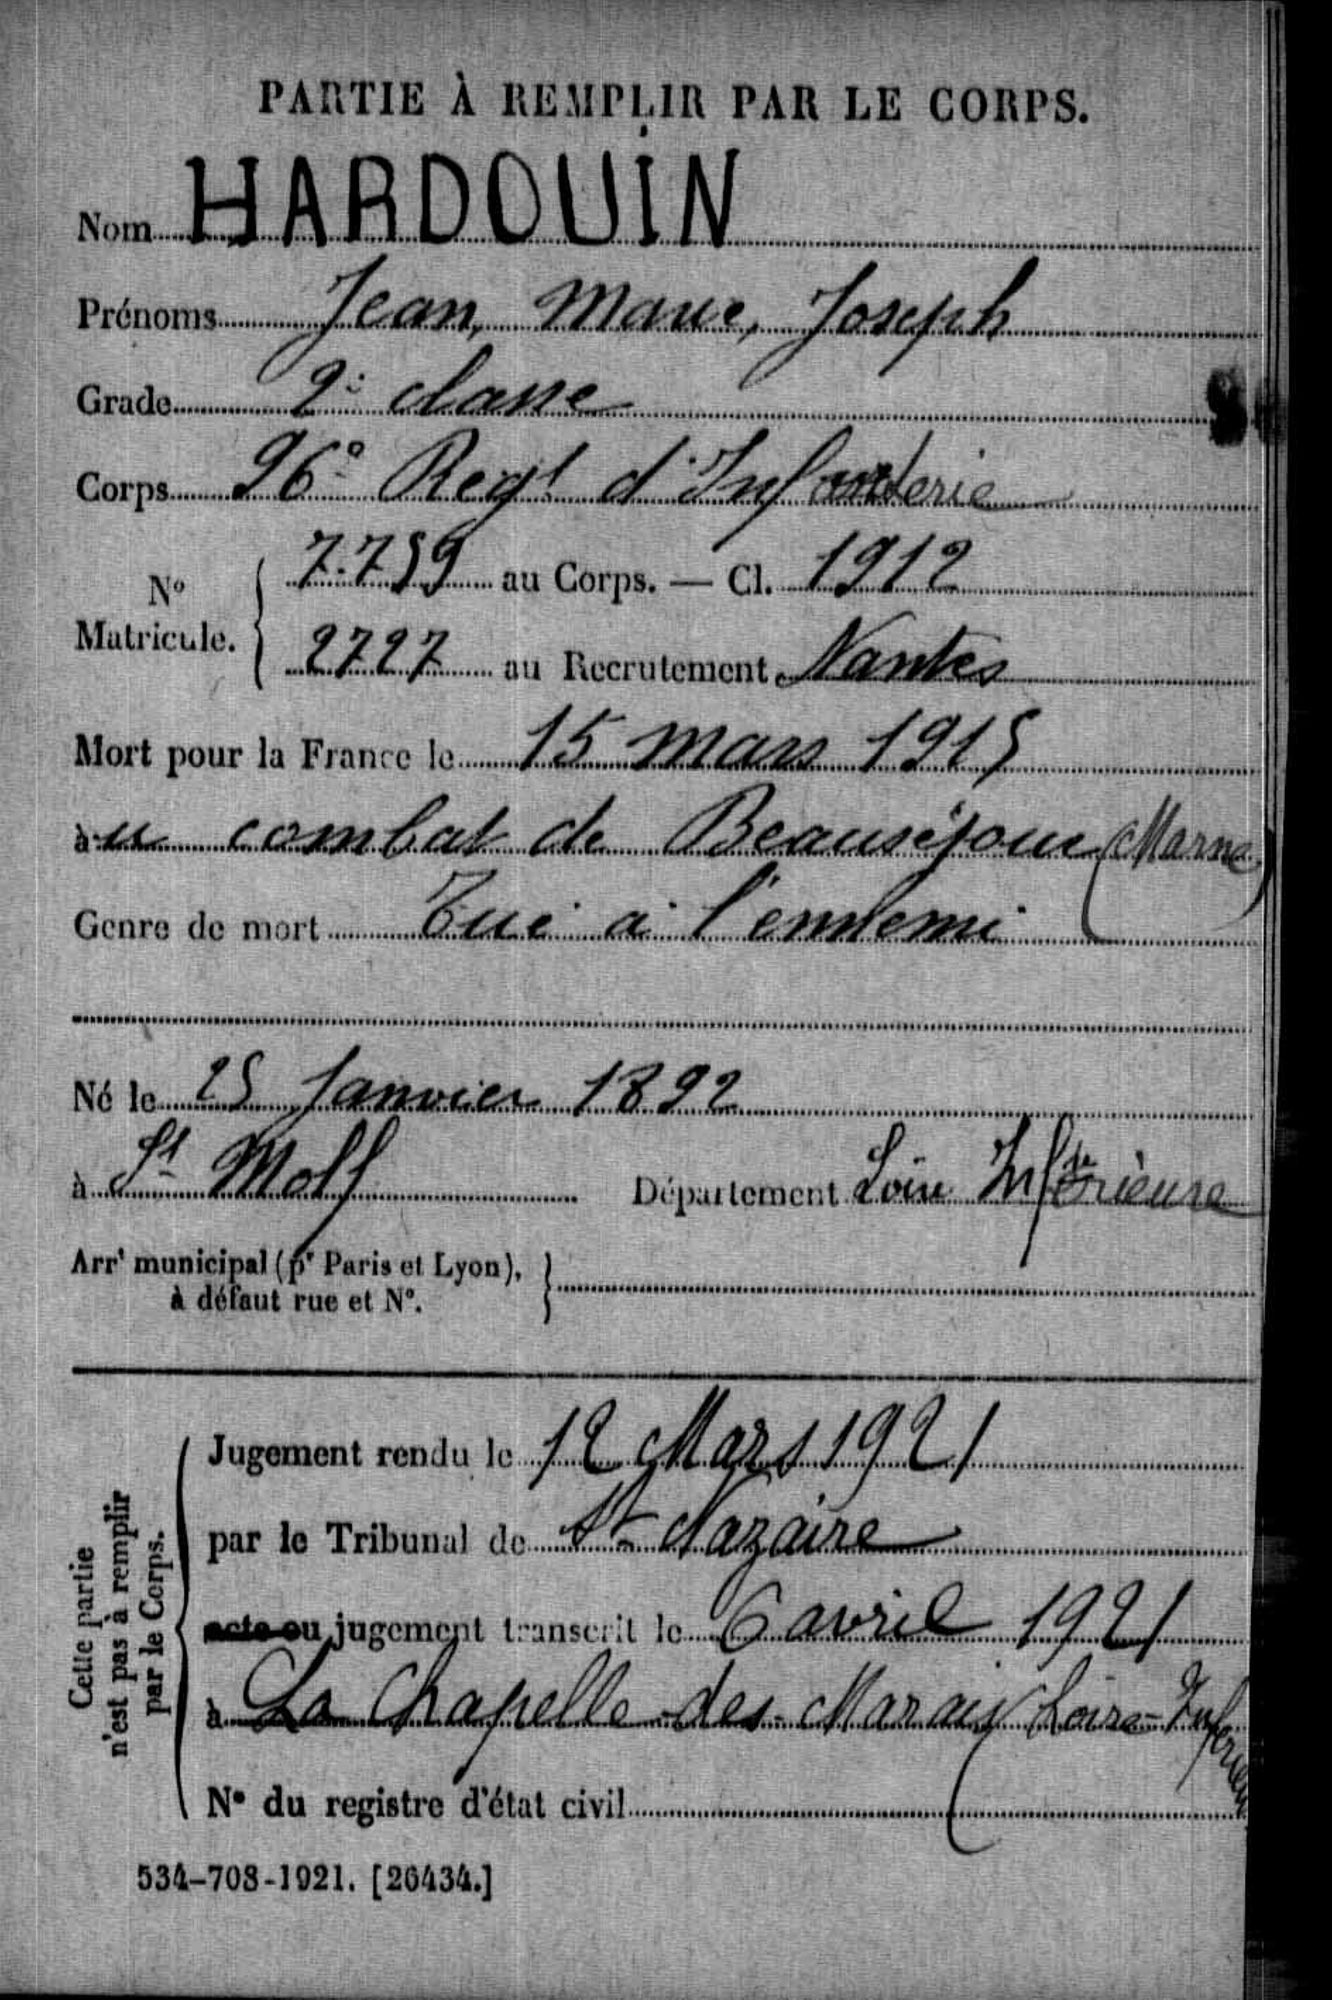 PARTIE À REMPLIR PAR LE CORPS.
Nom HARDOUIN
Prénoms Jean, Marie, Joseph
Grade 2e classe
Corps 96e Regt d'Infanterie
No Matricule. { 7.759 au Corps. — Cl. 1912
2727 au Recrutement Nantes
Mort pour la France le 15 mars 1915
au combat de Beauséjour (Marne)
Genre de mort Tué à l'ennemi
Né le 25 Janvier 1892
à St Molf Département Loire Inférieure
Arrt municipal (pr Paris et Lyon), à défaut rue et No. }
Cette partie n'est pas à remplir par le Corps.
Jugement rendu le 12 Mars 1921
par le Tribunal de St Nazaire
acte ou jugement transcrit le 6 avril 1921
à La Chapelle-des-Marais (Loire-Inférieure
No du registre d'état civil
534-708-1921. [26434.]